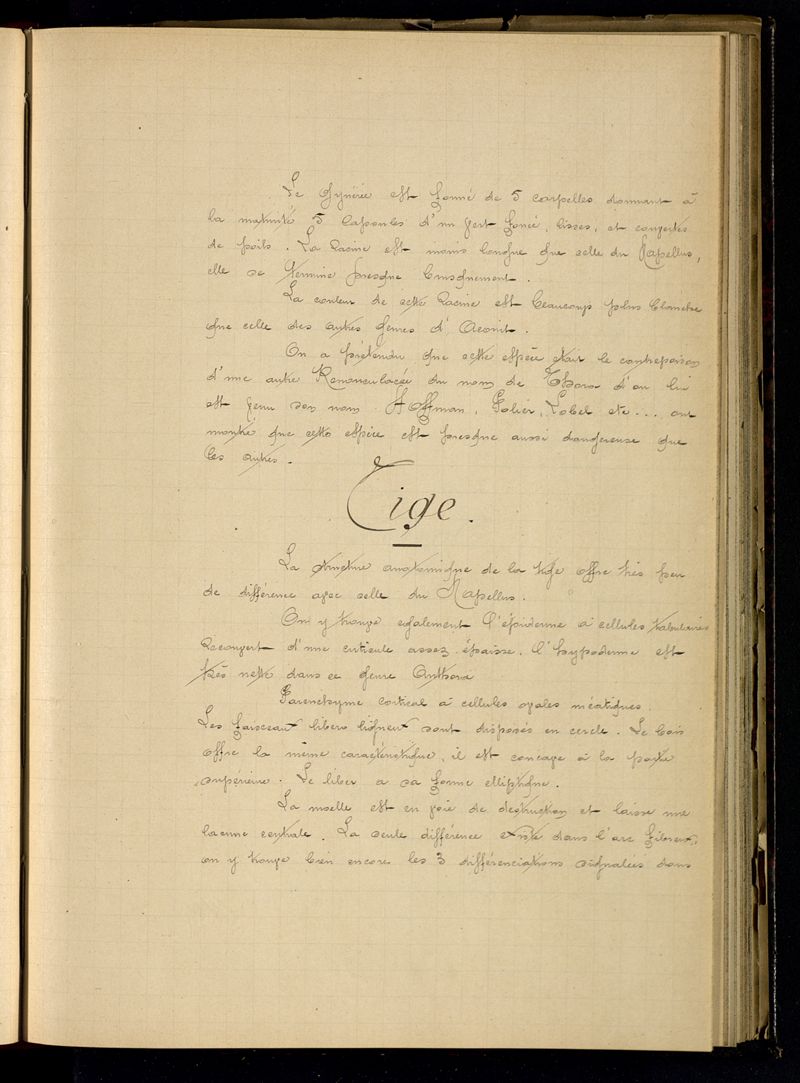 Le Gynécée est formé de 5 carpelles donnant à
la maturité 5 Capsules d'un vert foncé, lisses, et couvertes
de poils. La Racine est moins longue que celle du Napellus,
elle se termine presque brusquement.
La couleur de cette Racine est beaucoup plus blanche
que celle des autres genres d'Aconit.
On a prétendu que cette espèce était le contrepoison
d'une autre Renonculacée du nom de Thora d'ou lui
est venu son nom. Hoffman, Solier, Lobel etc... ont
montré que cette espèce est presque aussi dangereuse que
les autres.
Tige.
La structure anatomique de la tige offre très peu
de différence avec celle du Napellus.
On y trouve également l'épiderme à cellules tabulaires
Recouvert d'une cuticule assez épaisse. l'hypoderme est
très nette dans ce genre Anthora
Parenchyme cortical à cellules ovales méatiques.
Les faisceaux libero ligneux sont disposés en cercle. Le bois
offre la même caractéristique, il est concave à la partie
supérieure. Le liber a sa forme elliptique.
La moelle est en voie de destruction et laisse une
lacune centrale. La seule différence existe dans l'arc fibreux,
on y trouve bien encore les 3 différenciations signalées dans